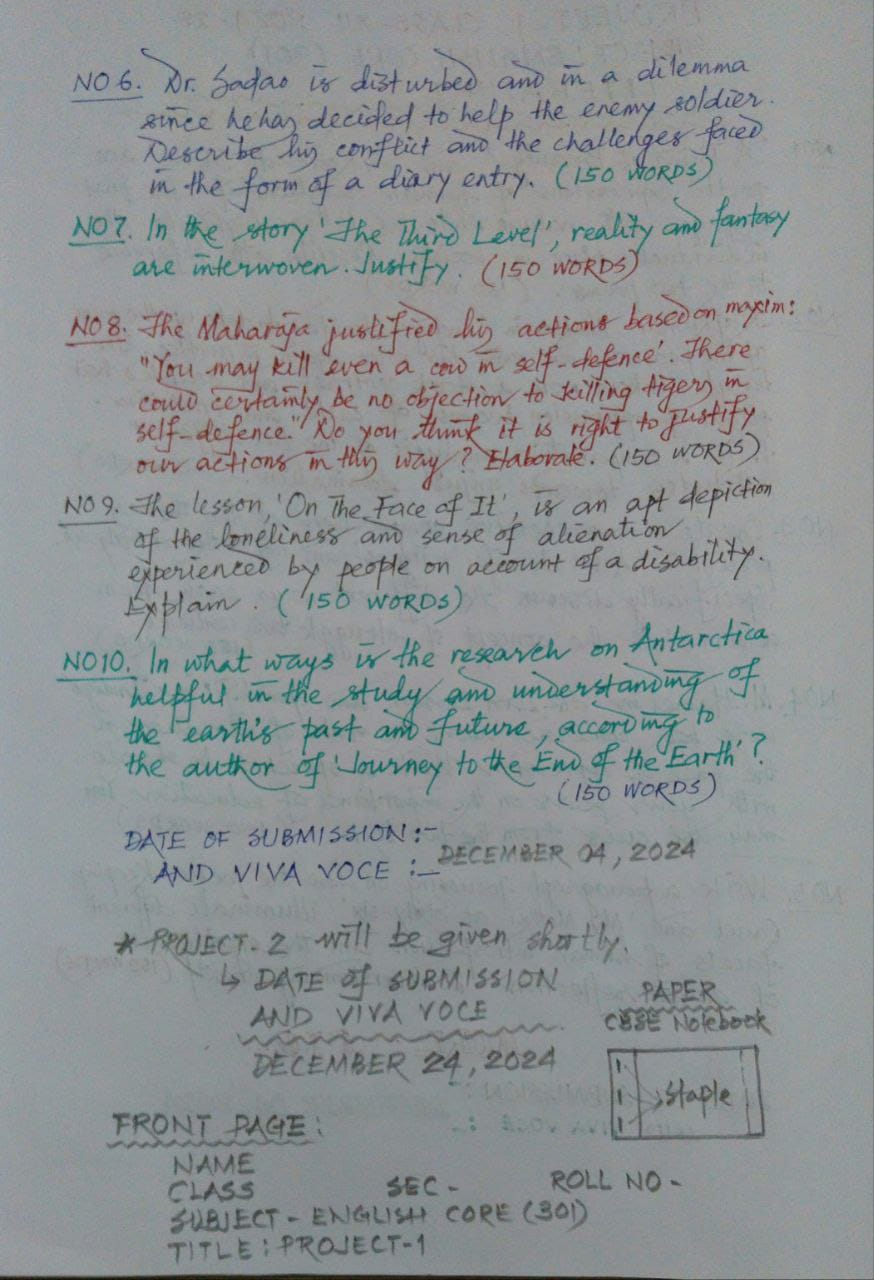 NO 6. Dr. Sadao is disturbed and in a dilemma
since he has decided to help the enemy soldier.
Describe his conflict and the challenges faced
in the form of a diary entry. (150 WORDS)
NO 7. In the story 'The Third Level', reality and fantasy
are interwoven. Justify. (150 WORDS)
NO 8. The Maharaja justified his actions based on maxim:
"You may kill even a cow in self-defence'. There
could certainly be no objection to killing tigers in
self-defence." Do you think it is right to justify
our actions in this way? Elaborate. (150 WORDS)
NO 9. The lesson, 'On The Face of It', is an apt depiction
of the loneliness and sense of alienation
experienced by people on account of a disability.
Explain. (150 WORDS)
NO 10. In what ways is the research on Antarctica
helpful in the study and understanding of
the earth's past and future, according to
the author of 'Journey to the End of the Earth'?
(150 WORDS)
DATE OF SUBMISSION :-
AND VIVA VOCE :- DECEMBER 04, 2024
* PROJECT-2 will be given shortly.
↳ DATE of SUBMISSION
AND VIVA VOCE
DECEMBER 24, 2024
PAPER
CBSE Notebook
Staple
FRONT PAGE :
NAME
CLASS SEC - ROLL NO -
SUBJECT - ENGLISH CORE (301)
TITLE : PROJECT-1